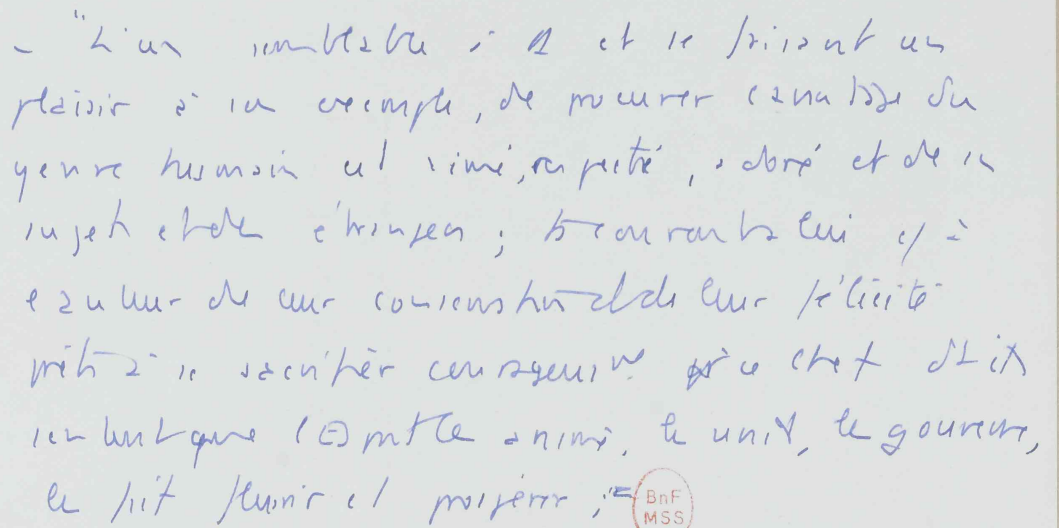 - "L'un semblable à D et se faisant un
plaisir à son exemple, de procurer l'avantage du
genre humain est aimé, respecté, adoré et de ses
sujets et des étrangers ; tous courant à lui c/ à
l'auteur de leur conservation et de leur félicité
prêts à se sacrifier courageusᵗ. ce chef d'Etat
sentant que l'Esprit le anime, le unit, le gouverne,
le fait fleurir et prospérer ;"
BnF
MSS